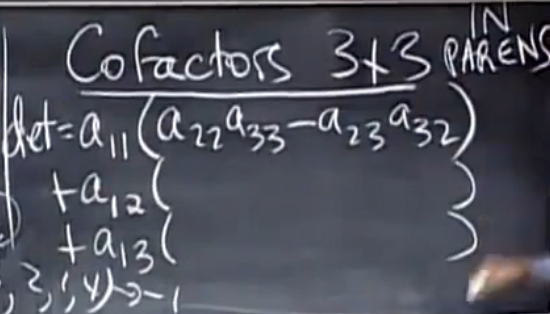 Cofactors 3x3 IN PARENS
det=a₁₁(a₂₂a₃₃-a₂₃a₃₂)
+a₁₂( )
+a₁₃( )